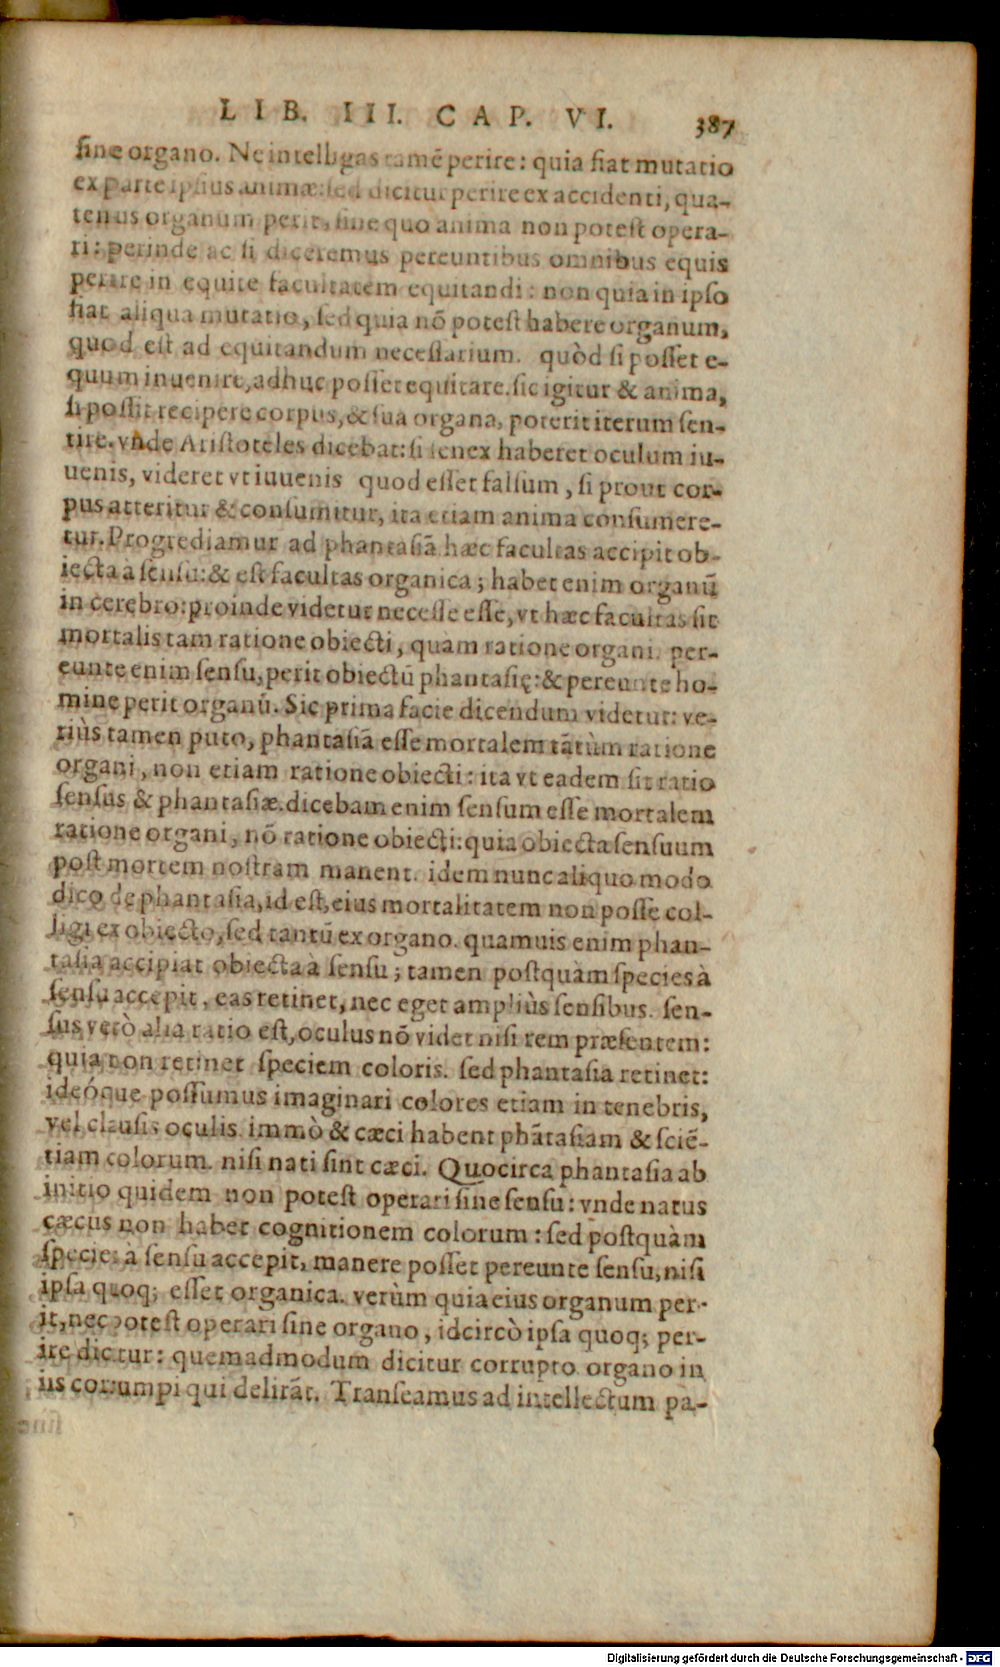 LIB. III. CAP. VI. 387
ſine organo. Ne intelligas tamē perire: quia fiat mutatio
ex parte ipſius animæ: ſed dicitur perire ex accidenti, qua-
tenus organum perit, ſine quo anima non poteſt opera-
ri: perinde ac ſi diceremus pereuntibus omnibus equis
perire in equite facultatem equitandi: non quia in ipſo
fiat aliqua mutatio, ſed quia nō poteſt habere organum,
quod eſt ad equitandum neceſſarium. quòd ſi poſſet e-
quum inuenire, adhuc poſſet equitare. ſic igitur & anima,
ſi poſſit recipere corpus, & ſua organa, poterit iterum ſen-
tire. vnde Ariſtoteles dicebat: ſi ſenex haberet oculum iu-
uenis, videret vt iuuenis quod eſſet falſum, ſi prout cor-
pus atteritur & conſumitur, ita etiam anima conſumere-
tur. Progrediamur ad phantaſiā hæc facultas accipit ob-
iecta à ſenſu: & eſt facultas organica; habet enim organū
in cerebro: proinde videtur neceſſe eſſe, vt hæc facultas ſit
mortalis tam ratione obiecti, quàm ratione organi. per-
eunte enim ſenſu, perit obiectū phantaſię: & pereunte ho-
mine perit organū. Sic prima facie dicendum videtur: ve-
riùs tamen puto, phantaſiā eſſe mortalem tātùm ratione
organi, non etiam ratione obiecti: ita vt eadem ſit ratio
ſenſus & phantaſiæ. dicebam enim ſenſum eſſe mortalem
ratione organi, nō ratione obiecti: quia obiecta ſenſuum
poſt mortem noſtram manent. idem nunc aliquo modo
dico de phantaſia, id eſt, eius mortalitatem non poſſe col-
ligi ex obiecto, ſed tantū ex organo. quamuis enim phan-
taſia accipiat obiecta à ſenſu; tamen poſtquàm ſpecies à
ſenſu accepit, eas retinet, nec eget ampliùs ſenſibus. ſen-
ſus verò alia ratio eſt, oculus nō videt niſi rem præſentem:
quia non retinet ſpeciem coloris. ſed phantaſia retinet:
ideóque poſſumus imaginari colores etiam in tenebris,
vel clauſis oculis. immò & cæci habent phātaſiam & ſciē-
tiam colorum. niſi nati ſint cæci. Quocirca phantaſia ab
initio quidem non poteſt operari ſine ſenſu: vnde natus
cæcus non habet cognitionem colorum: ſed poſtquàm
ſpecies à ſenſu accepit, manere poſſet pereunte ſenſu, niſi
ipſa quoq; eſſet organica. verùm quia eius organum per-
it, nec poteſt operari ſine organo, idcircò ipſa quoq; per-
ire dicitur: quemadmodum dicitur corrupto organo in
iis corrumpi qui delirāt. Tranſeamus ad intellectum pa-
Digitalisierung gefördert durch die Deutsche Forschungsgemeinschaft - DFG